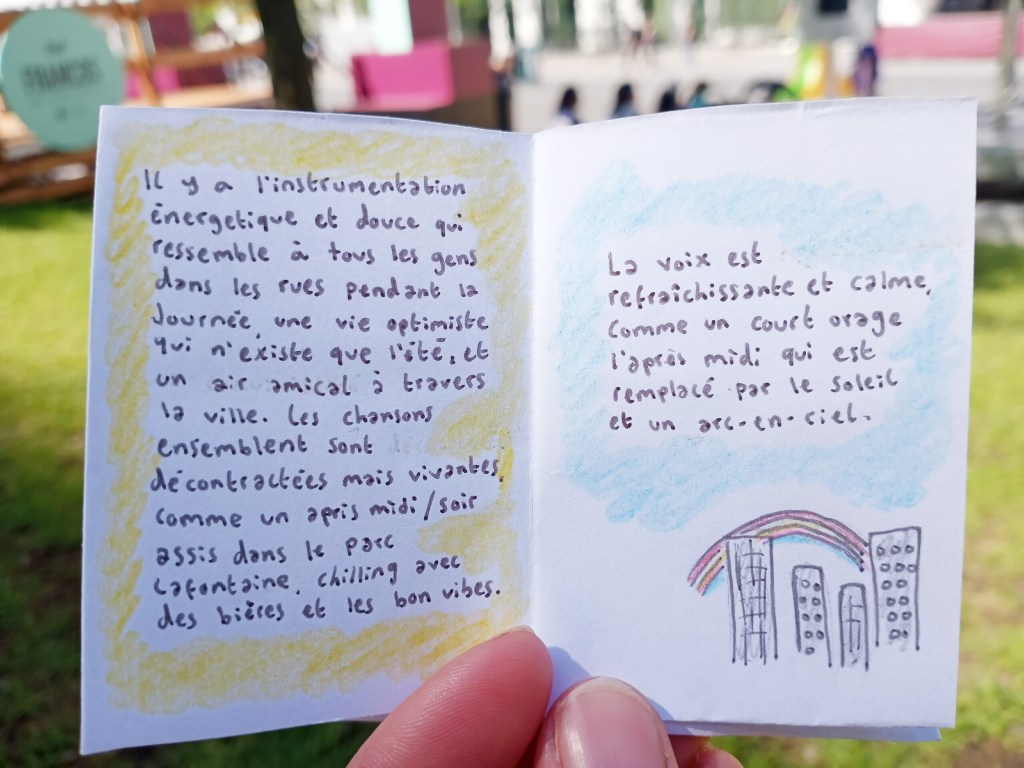 FRANCIS
Il y a l'instrumentation
énergetique et douce qui
ressemble à tous les gens
dans les rues pendant la
Journée, une vie optimiste
qui n'existe que l'été, et
un air amical à travers
la ville. Les chansons
ensemblent sont
décontractées mais vivantes,
comme un apris midi/soir
assis dans le parc
Lafontaine, chilling avec
des bières et les bon vibes.
La voix est
refraîchissante et calme,
comme un court orage
l'après midi qui est
remplacé par le soleil
et un arc-en-ciel.